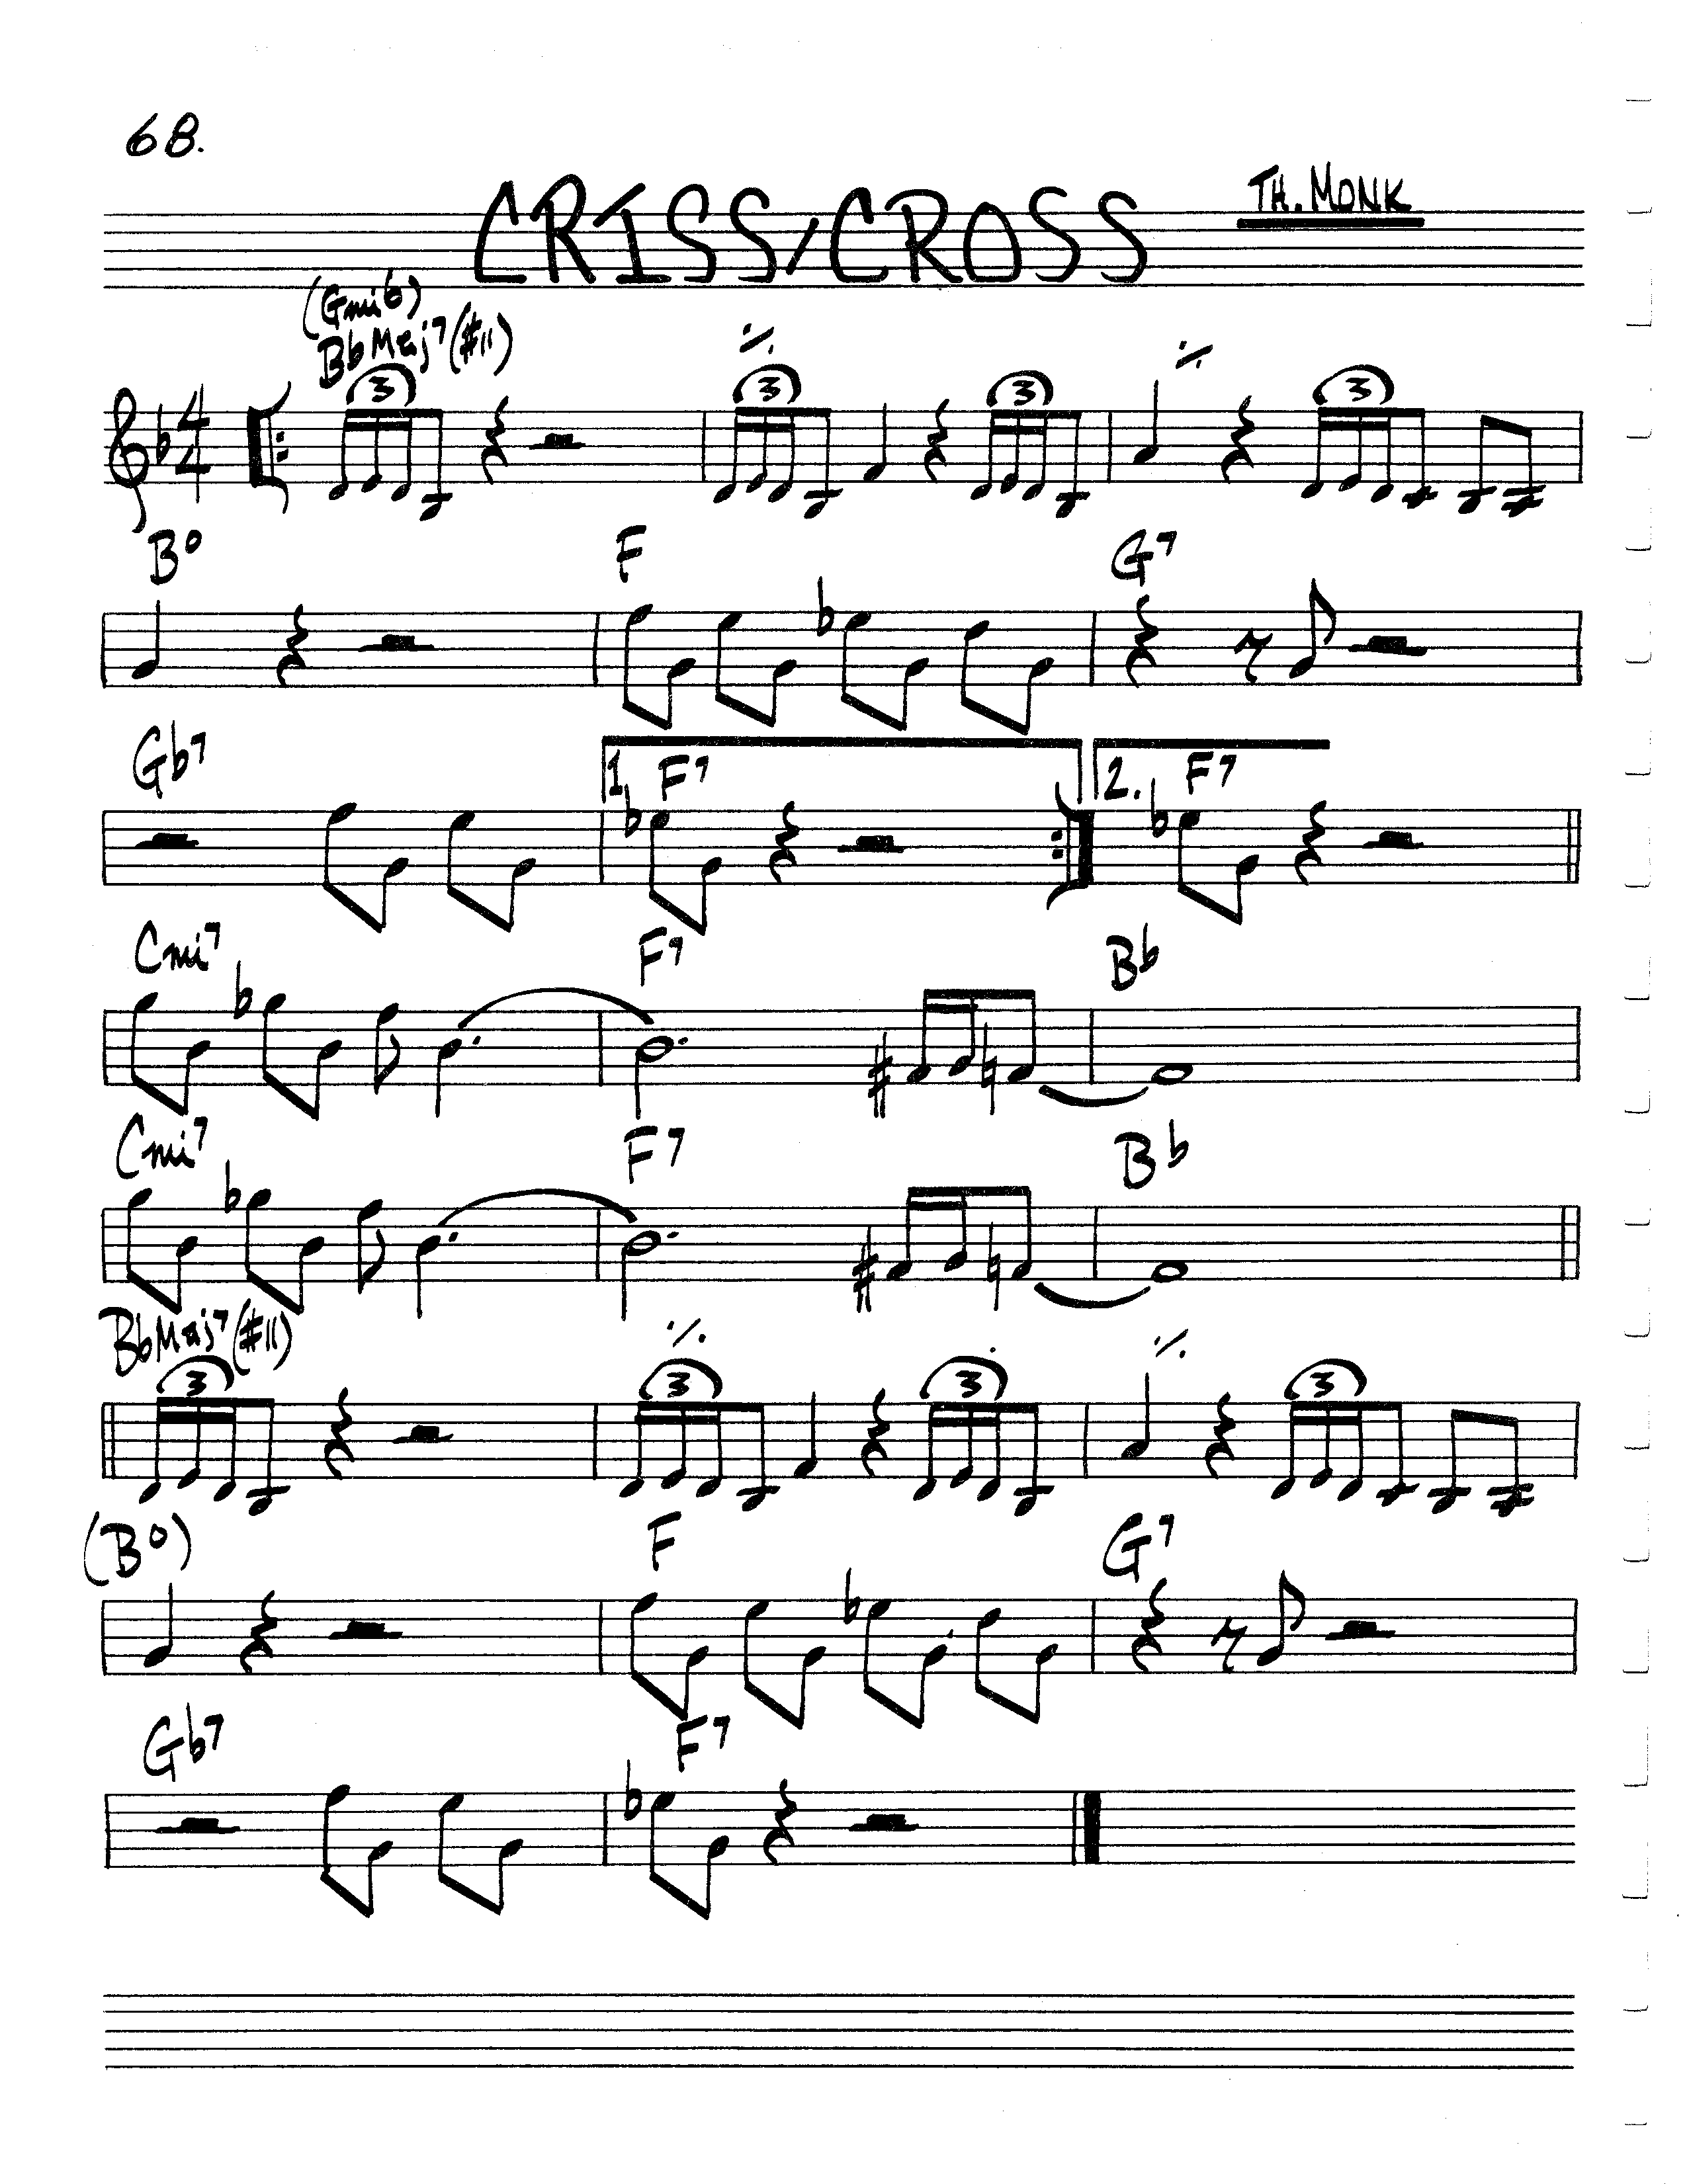 68.
CRISS/CROSS
TH. MONK
(Gmi6)
BbMaj7(#11)
4
4
3 3 3 3
B° F G7
Gb7 1. F7 2. F7
Cmi7 F7 Bb
Cmi7 F7 Bb
BbMaj7(#11)
3 3 3 3
(B°) F G7
Gb7 F7